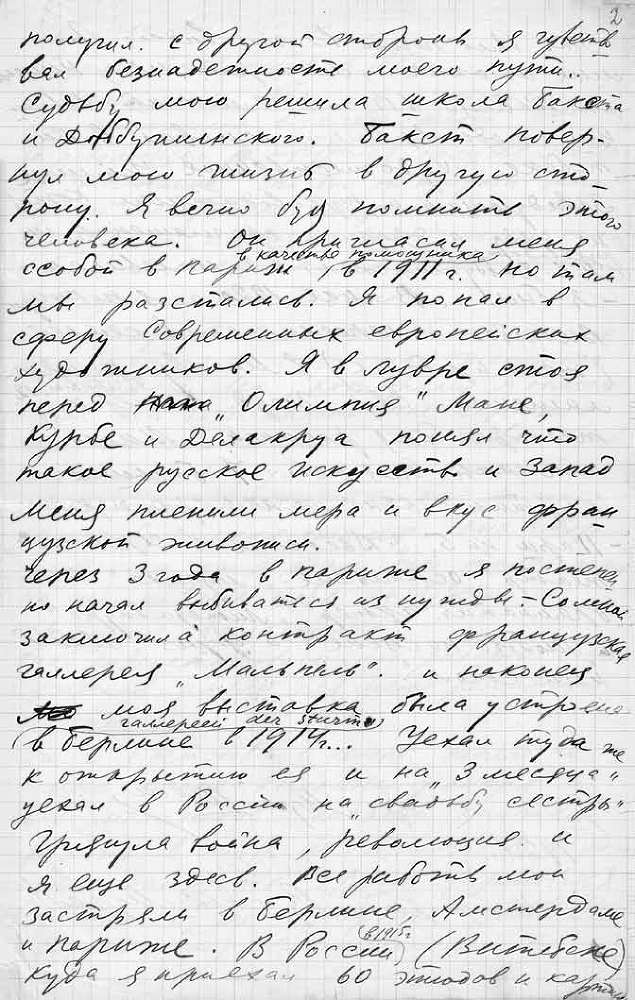 2
получил. с другой стороны я чувств
вал безнадежность моего пути..
Судьбу мою решила школа Бакста
и Добужинского. Бакст повер-
нул мою жизнь в другую сто-
рону. Я вечно буд помнить этого
человека. Он пригласил меня
в качестве помощника
с собой в Париж, в 1911 г. но там
мы разстались. Я попал в
сферу Современных европейских
художников. Я в Лувре стоя
перед „Олимпия" Мане,
Курбе и Делакруа понял что
такое русское искусств и Запад
Меня пленили мера и вкус фран-
цузской живописи.
Через 3 года в Париже я постепен
но начал выбиваться из нужды. – Со мной
заключила контракт французская
галлерея „Мальпель". и наконец
моя выставка была устроена
галлереей der Sturm
(в Берлине в 1914 г... Уехал туда же
к открытию ея и на „3 месяца"
уехал в Россию на „свадьбу сестры"
Грянула война, революция. и
я еще здесь. Все работы мои
застряли в Берлине, Амстердаме
и Париже. В России (в 1915 г.) (Витебске)
куда я приехал 60 этюдов и картин